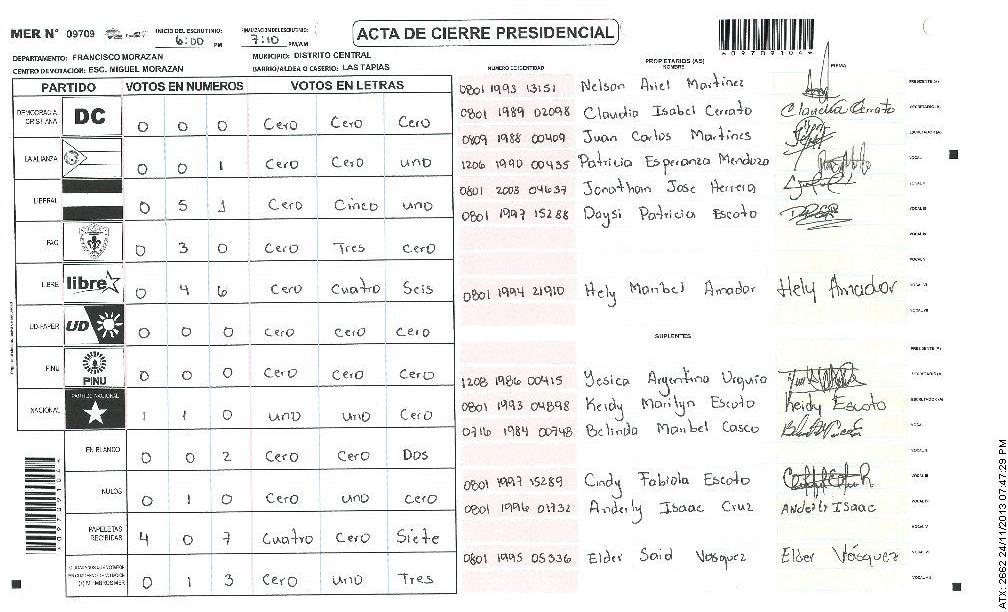 MER N° 09709 INICIO DEL ESCRUTINIO: 6:00 PM FINALIZACION DEL ESCRUTINIO: 7:10 PM/AM
ACTA DE CIERRE PRESIDENCIAL
DEPARTAMENTO: FRANCISCO MORAZAN MUNICIPIO: DISTRITO CENTRAL
CENTRO DE VOTACION: ESC. MIGUEL MORAZAN BARRIO/ALDEA O CASERIO: LAS TAPIAS
PARTIDO VOTOS EN NUMEROS VOTOS EN LETRAS
DEMOCRACIA CRISTIANA DC 0 0 0 Cero Cero Cero
LA ALIANZA 0 0 1 Cero Cero uno
LIBERAL 0 5 1 Cero Cinco uno
PAC 0 3 0 Cero Tres Cero
LIBRE libre 0 4 6 Cero Cuatro Seis
UD-FAPER UD 0 0 0 Cero Cero Cero
PINU PINU 0 0 0 Cero Cero Cero
NACIONAL PARTIDO NACIONAL 1 1 0 uno uno Cero
EN BLANCO 0 0 2 Cero Cero Dos
NULOS 0 1 0 Cero uno cero
PAPELETAS RECIBIDAS 4 0 7 Cuatro Cero Siete
0 1 3 Cero uno Tres
NUMERO DE IDENTIDAD PROPIETARIOS (AS) NOMBRE FIRMA
0801 1993 13151 Nelson Ariel Martinez PRESIDENTE (A)
0801 1989 02098 Claudia Isabel Cerrato Claudia Cerrato SECRETARIO (A)
0809 1988 00409 Juan Carlos Martines ESCRUTADOR (A)
1206 1990 00435 Patricia Esperanza Mendoza VOCAL I
0801 2003 04637 Jonathan Jose Herrera VOCAL II
0801 1997 15288 Daysi Patricia Escoto VOCAL III
VOCAL IV
VOCAL V
0801 1994 21910 Hely Maribel Amador Hely Amador VOCAL VI
VOCAL VII
SUPLENTES
PRESIDENTE (A)
1208 1986 00415 Yesica Argentina Urquia SECRETARIO (A)
0801 1993 04898 Keidy Marilyn Escoto Keidy Escoto ESCRUTADOR (A)
0716 1984 00748 Belinda Maribel Casco VOCAL I
VOCAL II
0801 1997 15289 Cindy Fabiola Escoto VOCAL III
0801 1996 01732 Anderly Isaac Cruz Anderly Isaac VOCAL IV
VOCAL V
0801 1995 05336 Elder Said Vasquez Elder Vásquez VOCAL VI
VOCAL VII
ATX: 2662 24/11/2013 07:47:29 PM